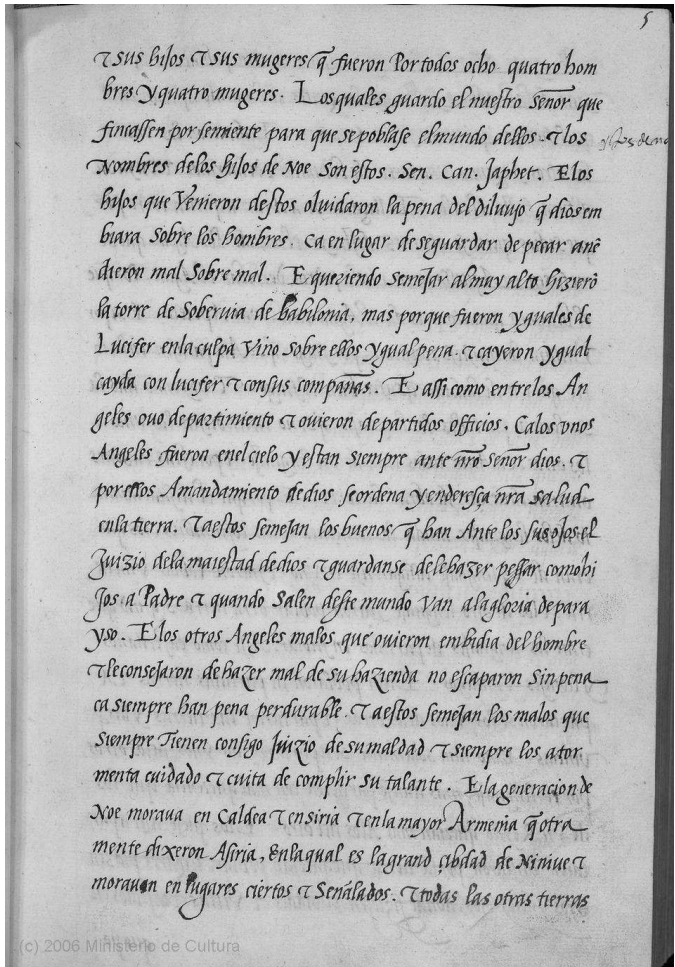 5
⁊ sus hijos ⁊ sus mugeres q̃ fueron Por todos ocho quatro hom
bres y quatro mugeres. Los quales guardo el nuestro Señor que
fincassen por semiente para que se poblase el mundo dellos. ⁊ los
Nombres de los hijos de Noe son estos. Sen. Can. Japhet. E los
hijos que Venieron destos oluidaron la pena del diluujo q̃ dios em
biara sobre los hombres. Ca en lugar de se guardar de pecar anẽ
dieron mal sobre mal. E queriendo semejar al muy alto hizierõ
la torre de Soberuia de babilonia, mas porque fueron yguales de
Lucifer en la culpa Vino sobre ellos ygual pena ⁊ cayeron ygual
cayda con lucifer ⁊ con sus compañas. E assi como entre los An
geles ouo departimiento ⁊ ouieron departidos officios. Ca los vnos
Angeles fueron en el cielo y estan siempre ante nr̃o Señor dios. ⁊
por ellos A mandamiento de dios se ordena y enderesça nr̃a salud
en la tierra. ⁊ a estos semejan los buenos q̃ han Ante los sus ojos el
Juizio de la maiestad de dios ⁊ guardanse de le hazer pessar como hi
jos a Padre ⁊ quando Salen deste mundo Van a la gloria de para
yso. E los otros Angeles malos que ouieron embidia del hombre
⁊ le consejaron de hazer mal de su hazienda no escaparon sin pena
ca siempre han pena perdurable ⁊ a estos semejan los malos que
siempre Tienen consigo Juizio de su maldad ⁊ siempre los ator
menta cuidado ⁊ cuita de complir su talante. E la generacion de
Noe moraua en Caldea ⁊ en siria ⁊ en la mayor Armenia q̃ otra
mente dixeron Asiria, En la qual es la grand çibdad de Niniue ⁊
morauan en lugares ciertos ⁊ Señalados. ⁊ todas las otras tierras
(c) 2006 Ministerio de Cultura